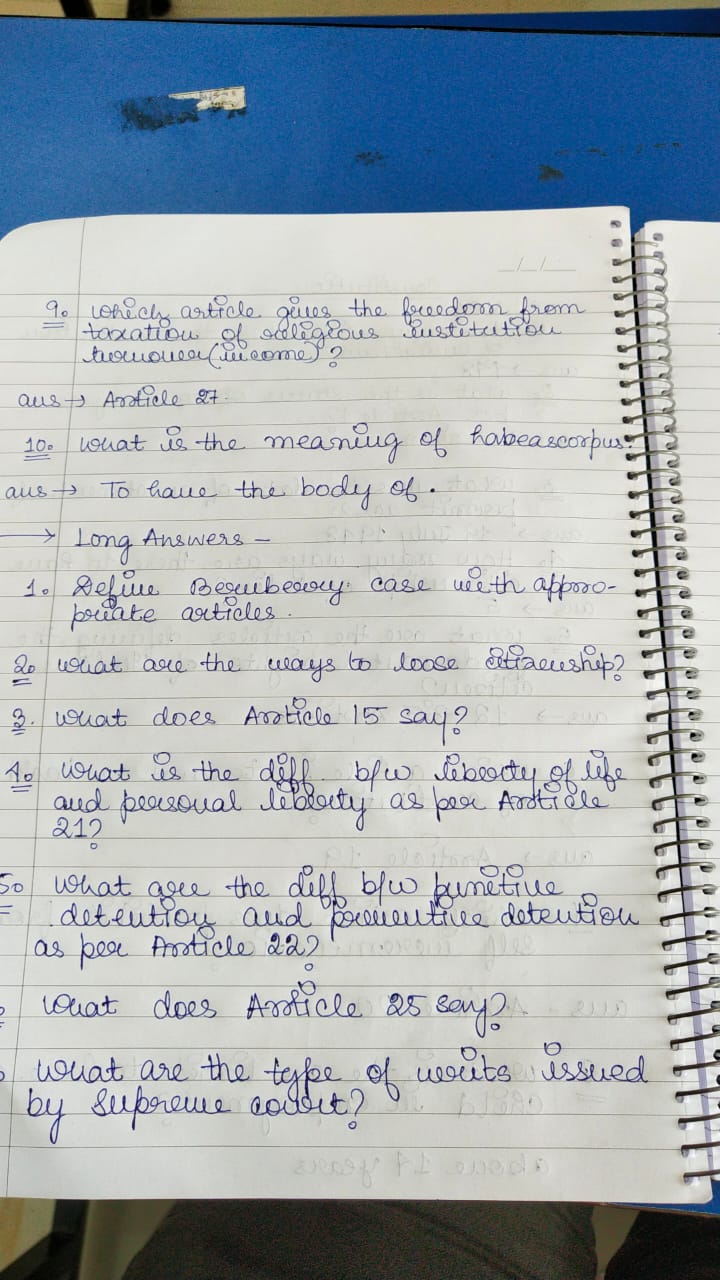 9. which article gives the freedom from
taxation of religious institution
(income)?
ans → Article 27.
10. what is the meaning of habeascorpus?
ans → To have the body of.
→ Long Answers –
1. Define Berubeary case with appro-
priate articles.
2. what are the ways to loose citizenship?
3. what does Article 15 say?
4. what is the diff. b/w liberty of life
and personal liberty as per Article
21?
5. what are the diff b/w punitive
detention and preventive detention
as per Article 22?
what does Article 25 say?
what are the type of writs issued
by Supreme court?